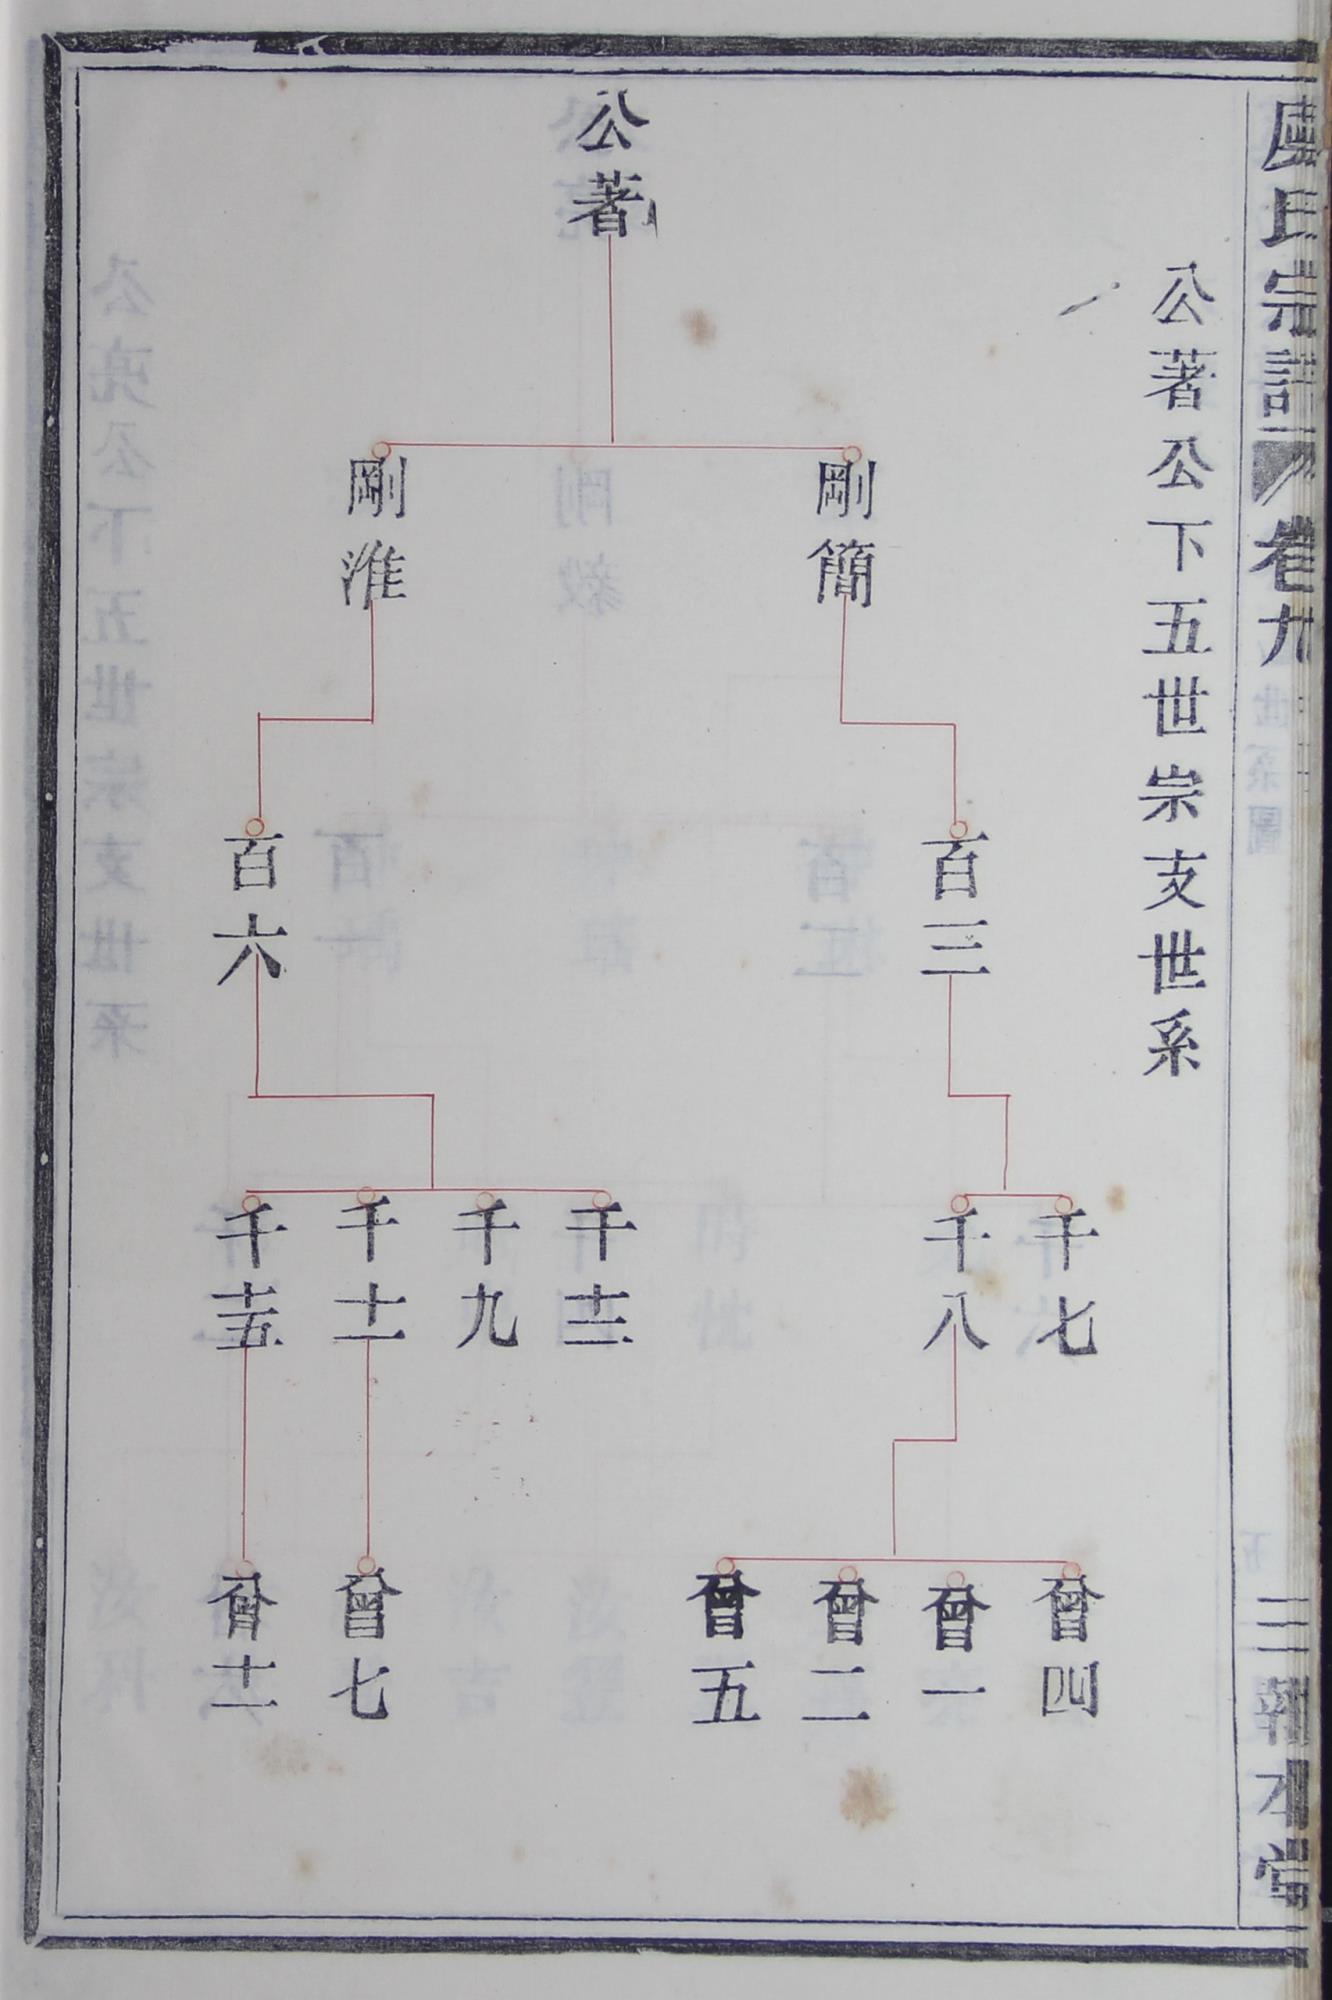 盧氏宗譜 卷九
三 報本堂
公著公下五世宗支世系
公著
剛簡
剛淮
百三
百六
千七
千八
千十三
千九
千十一
千十五
曾四
曾一
曾二
曾五
曾七
曾十一